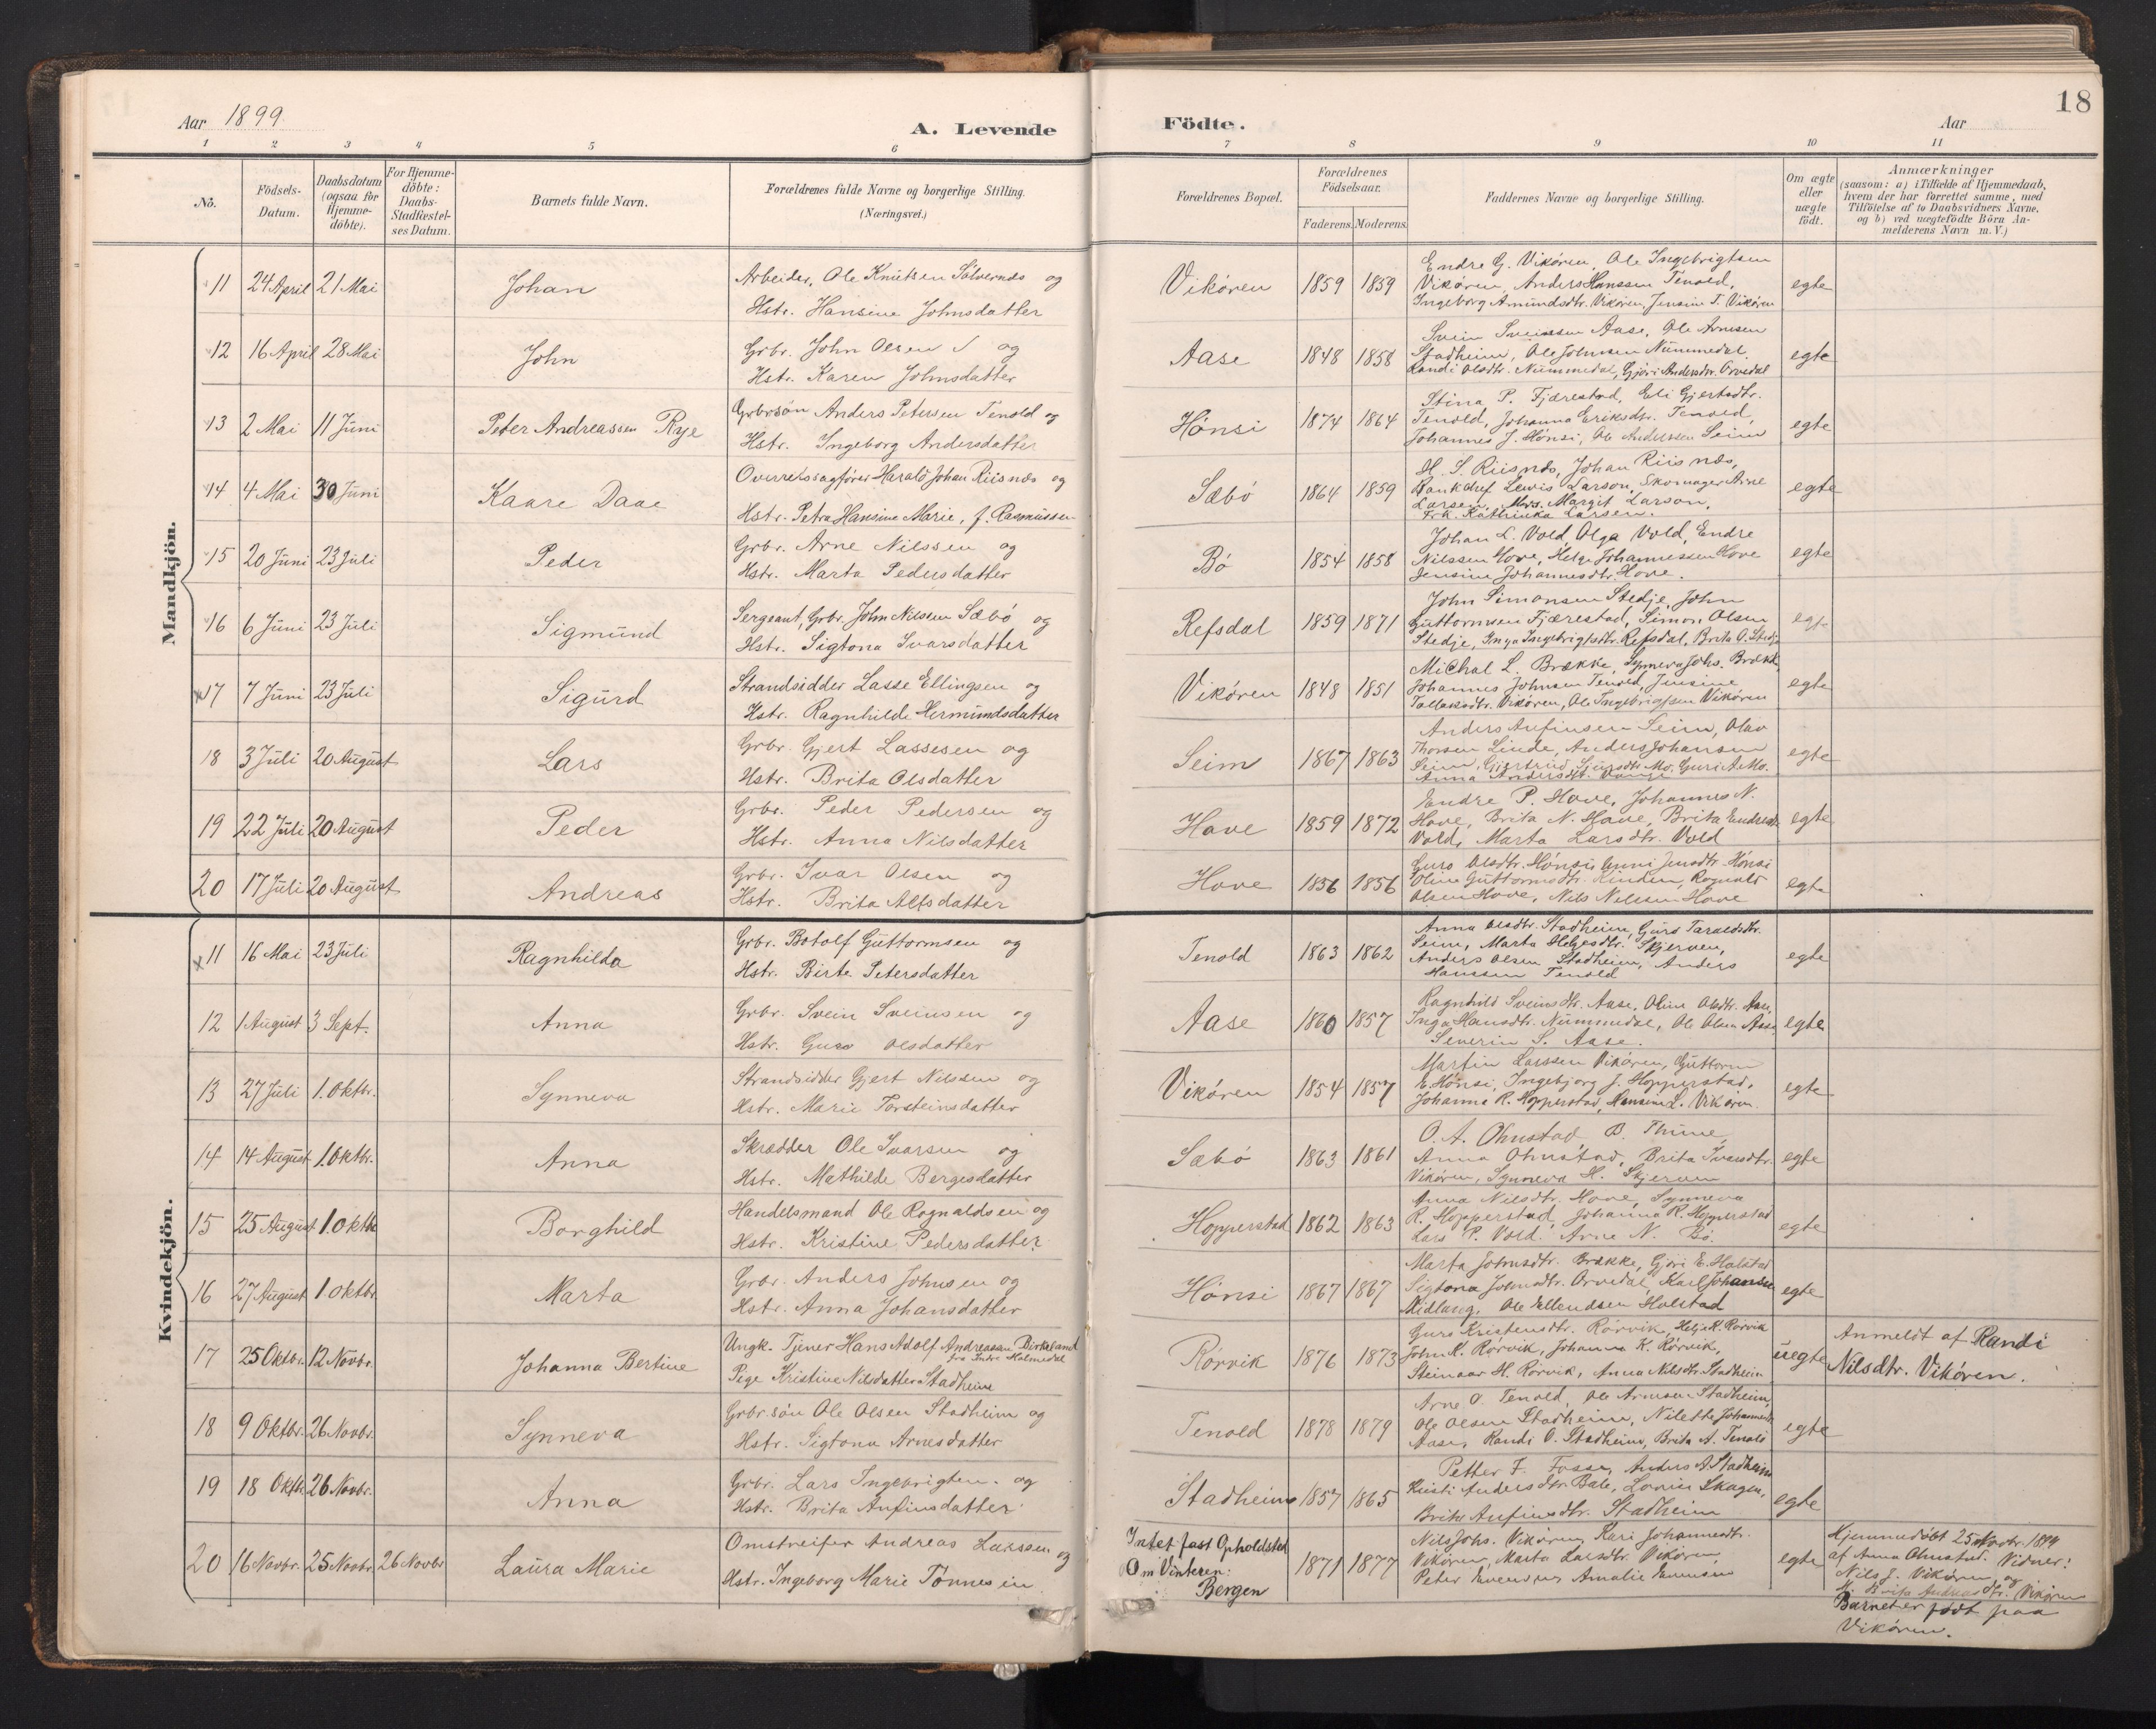 18
Aar 1899.
A. Levende Födte.
Aar
1 2 3 4 5 6 7 8 9 10 11
No.
Födsels-Datum.
Daabsdatum (ogsaa for Hjemme-döbte).
For Hjemme-döbte: Daabs-Stadfæstel-ses Datum.
Barnets fulde Navn.
Forældrenes fulde Navne og borgerlige Stilling.
(Næringsvei.)
Forældrenes Bopæl.
Forældrenes Födselsaar.
Faderens. Moderens.
Faddernes Navne og borgerlige Stilling.
Om ægte eller uægte födt.
Anmærkninger
(saasom: a) i Tilfælde af Hjemmedaab, hvem der har forrettet samme, med Tilföielse af to Daabsvidners Navne, og b) ved uægtefödte Börn Anmelderens Navn m. V.)
Mandkjön.
11 24 April 21 Mai Johan
Arbeider, Ole Knutsen Sølvernes og
Hstr. Hansine Johnsdatter
Vikøren 1859 1859
Endre G. Vikøren, Ole Ingebrigtsen
Vikøren, Anders Hanssen Tenold,
Ingeborg Amundsdtr. Vikøren, Jensine T. Vikøren
egte
12 16 April 28 Mai John
Grbr. John Olsen og
Hstr. Karen Johnsdatter
Aase 1848 1858
Svein Sveinssen Aase, Ole Arnesen
Stadheim, Ole Johnsen Nummedal,
Randi Olsdtr. Nummedal, Gjøri Andersdtr. Orvedal
egte
13 2 Mai 11 Juni Peter Andreassen Rye
Grbrsøn Anders Petersen Tenold og
Hstr. Ingeborg Andersdatter
Hønsi 1874 1864
Stina P. Fjærestad, Eli Gjertsdtr.
Tenold, Johanna Eriksdtr. Tenold,
Johannes J. Hønsi, Ole Anderssen Seim
egte
14 4 Mai 30 Juni Kaare Daae
Overretssagfører Harald Johan Riisnæs og
Hstr. Petra Hansine Marie, f. Rasmussen
Sæbø 1864 1859
H. S. Riisnæs, Johan Riisnæs,
Bankchef Lewis Larson, Skomager Arne
Larsen, Mrs. Margit Larson,
Frk. Kathinka Larsen.
egte
15 20 Juni 23 Juli Peder
Grbr. Arne Nilssen og
Hstr. Marta Pedersdatter
Bø 1854 1858
Johan L. Vold, Olga Vold, Endre
Nilssen Hove, Helge Johannessen Hove
Jensine Johannesdtr. Hove.
egte
16 6 Juni 23 Juli Sigmund
Sergeant, Grbr. John Nilssen Sæbø og
Hstr. Sigtona Ivarsdatter
Refsdal 1859 1871
John Simonsen Stedje, John
Guttormsen Fjærestad, Simon Olsen
Stedje, Inga Ingebrigtsdtr. Refsdal, Brita O. Stedje
egte
17 7 Juni 23 Juli Sigurd
Strandsidder Lasse Ellingsen og
Hstr. Ragnhilde Hermundsdatter
Vikøren 1848 1851
Michal L. Brække, Synneva Johs. Brække
Johannes Johnsen Tenold, Jensine
Tolleksdtr. Vikøren, Ole Ingebrigtsen Vikøren
egte
18 3 Juli 20 August Lars
Grbr. Gjert Lassesen og
Hstr. Brita Olsdatter
Seim 1867 1863
Anders Anfinsen Seim, Olav
Thorsen Linde, Anders Johansen
Seim, Gjertrud Sjursdtr. Mo, Guri A. Mo.
Anna Andersdtr.
egte
19 22 Juli 20 August Peder
Grbr. Peder Pedersen og
Hstr. Anna Nilsdatter
Hove 1859 1872
Endre P. Hove, Johannes N.
Hove, Brita N. Hove, Brita Endresdtr.
Vold, Marta Larsdtr. Vold
egte
20 17 Juli 20 August Andreas
Grbr. Ivar Olsen og
Hstr. Brita Alfsdatter
Hove 1856 1856
Guro Olsdtr. Hønsi, Anni Jensdtr. Hønsi
Oline Guttormsdtr. Hinden, Rognald
Olsen Hove, Nils Nilssen Hove
egte
Kvindekjön.
11 16 Mai 23 Juli Ragnhilda
Grbr. Botolf Guttormsen og
Hstr. Birte Petersdatter
Tenold 1863 1862
Anna Olsdtr. Stadheim, Guro Taraldsdtr.
Seim, Marta Helgesdtr. Skjerven,
Anders Olsen Stadheim, Anders
Hanssen Tenold
egte
12 1 August 3 Sept. Anna
Grbr. Svein Sveinsen og
Hstr. Guro Olsdatter
Aase 1860 1857
Ragnhild Sveinsdtr. Aase, Oline Olsdtr. Aase,
Inga Hansdtr. Nummedal, Ole Olsen Aase
Severin S. Aase.
egte
13 27 Juli 1. Oktbr. Synneva
Strandsidder Gjert Nilssen og
Hstr. Marie Torsteinsdatter
Vikøren 1854 1857
Martin Larssen Vikøren, Guttorm
E. Hønsi, Ingebjorg J. Hopperstad,
Johanna R. Hopperstad, Hansine L. Vikøren.
egte
14 14 August 1. Oktbr. Anna
Skrædder Ole Ivarsen og
Hstr. Mathilde Bergesdatter
Sæbø 1863 1861
O. A. Ohnstad, B. Thune,
Anna Ohnstad, Brita Ivarsdtr.
Vikøren, Synneva H. Skjerven
egte
15 25 August 1 Oktbr Borghild
Handelsmand Ole Rognaldsen og
Hstr. Kristine Pedersdatter
Hopperstad 1862 1863
Anna Nilsdtr. Hove, Synneva
R. Hopperstad, Johanna R. Hopperstad
Lars P. Vold. Arne N. Bø.
egte
16 27 August 1 Oktbr. Marta
Grbr. Anders Johnsen og
Hstr. Anna Johansdatter
Hønsi 1867 1867
Marta Johnsdtr. Brække, Gjøri E. Holstad
Sigtona Johnsdtr. Orvedal, Karl Johansen
Midlang, Ole Ellendsen Holstad
egte
17 25 Oktbr. 12 Novbr. Johanna Bertine
Ungk. Tjener Hans Adolf Andreassen Birkeland
fra Indre Holmedal
Pige Kristine Nilsdatter Stadheim
Rørvik 1876 1873
Guro Kristensdtr. Rørvik, Helje K. Rørvik
John K. Rørvik, Johanna K. Rørvik,
Steinaar H. Rørvik, Anna Nilsdtr. Stadheim
uegte
Anmeldt af Randi
Nilsdtr. Vikøren.
18 9 Oktbr. 26 Novbr. Synneva
Grbr.søn Ole Olsen Stadheim og
Hstr. Sigtona Arnesdatter
Tenold 1878 1879
Arne O. Tenold, Ole Arnesen Stadheim,
Ole Olsen Stadheim, Nilette Johannesdtr.
Aase, Randi O. Stadheim, Brita A. Tenold
egte
19 18 Oktb. 26 Novbr. Anna
Grbr. Lars Ingebrigten. og
Hstr. Brita Anfinsdatter
Stadheim 1857 1865
Petter F. Fosse, Anders A. Stadheim
Kristi Andersdtr. Bale, Lovise Skagen,
Brita Anfinsdtr. Stadheim
egte
20 16 Novbr. 25 Novbr. 26 Novbr Laura Marie
Omstreifer Andreas Larssen og
Hstr. Ingeborg Marie Tønnesen
Intet fast Opholdsted
Om Vinteren:
Bergen
1871 1877
Nils Johs. Vikøren, Kari Johannesdtr.
Vikøren, Marta Larsdtr. Vikøren,
Peter Evensen, Amalie Evensen
egte
Hjemmedøbt 25 Novbr. 1899
af Anna Ohnstad. Vidner:
Nils J. Vikøren og
Brita Andersdtr. Vikøren
Barnet er født paa
Vikøren.